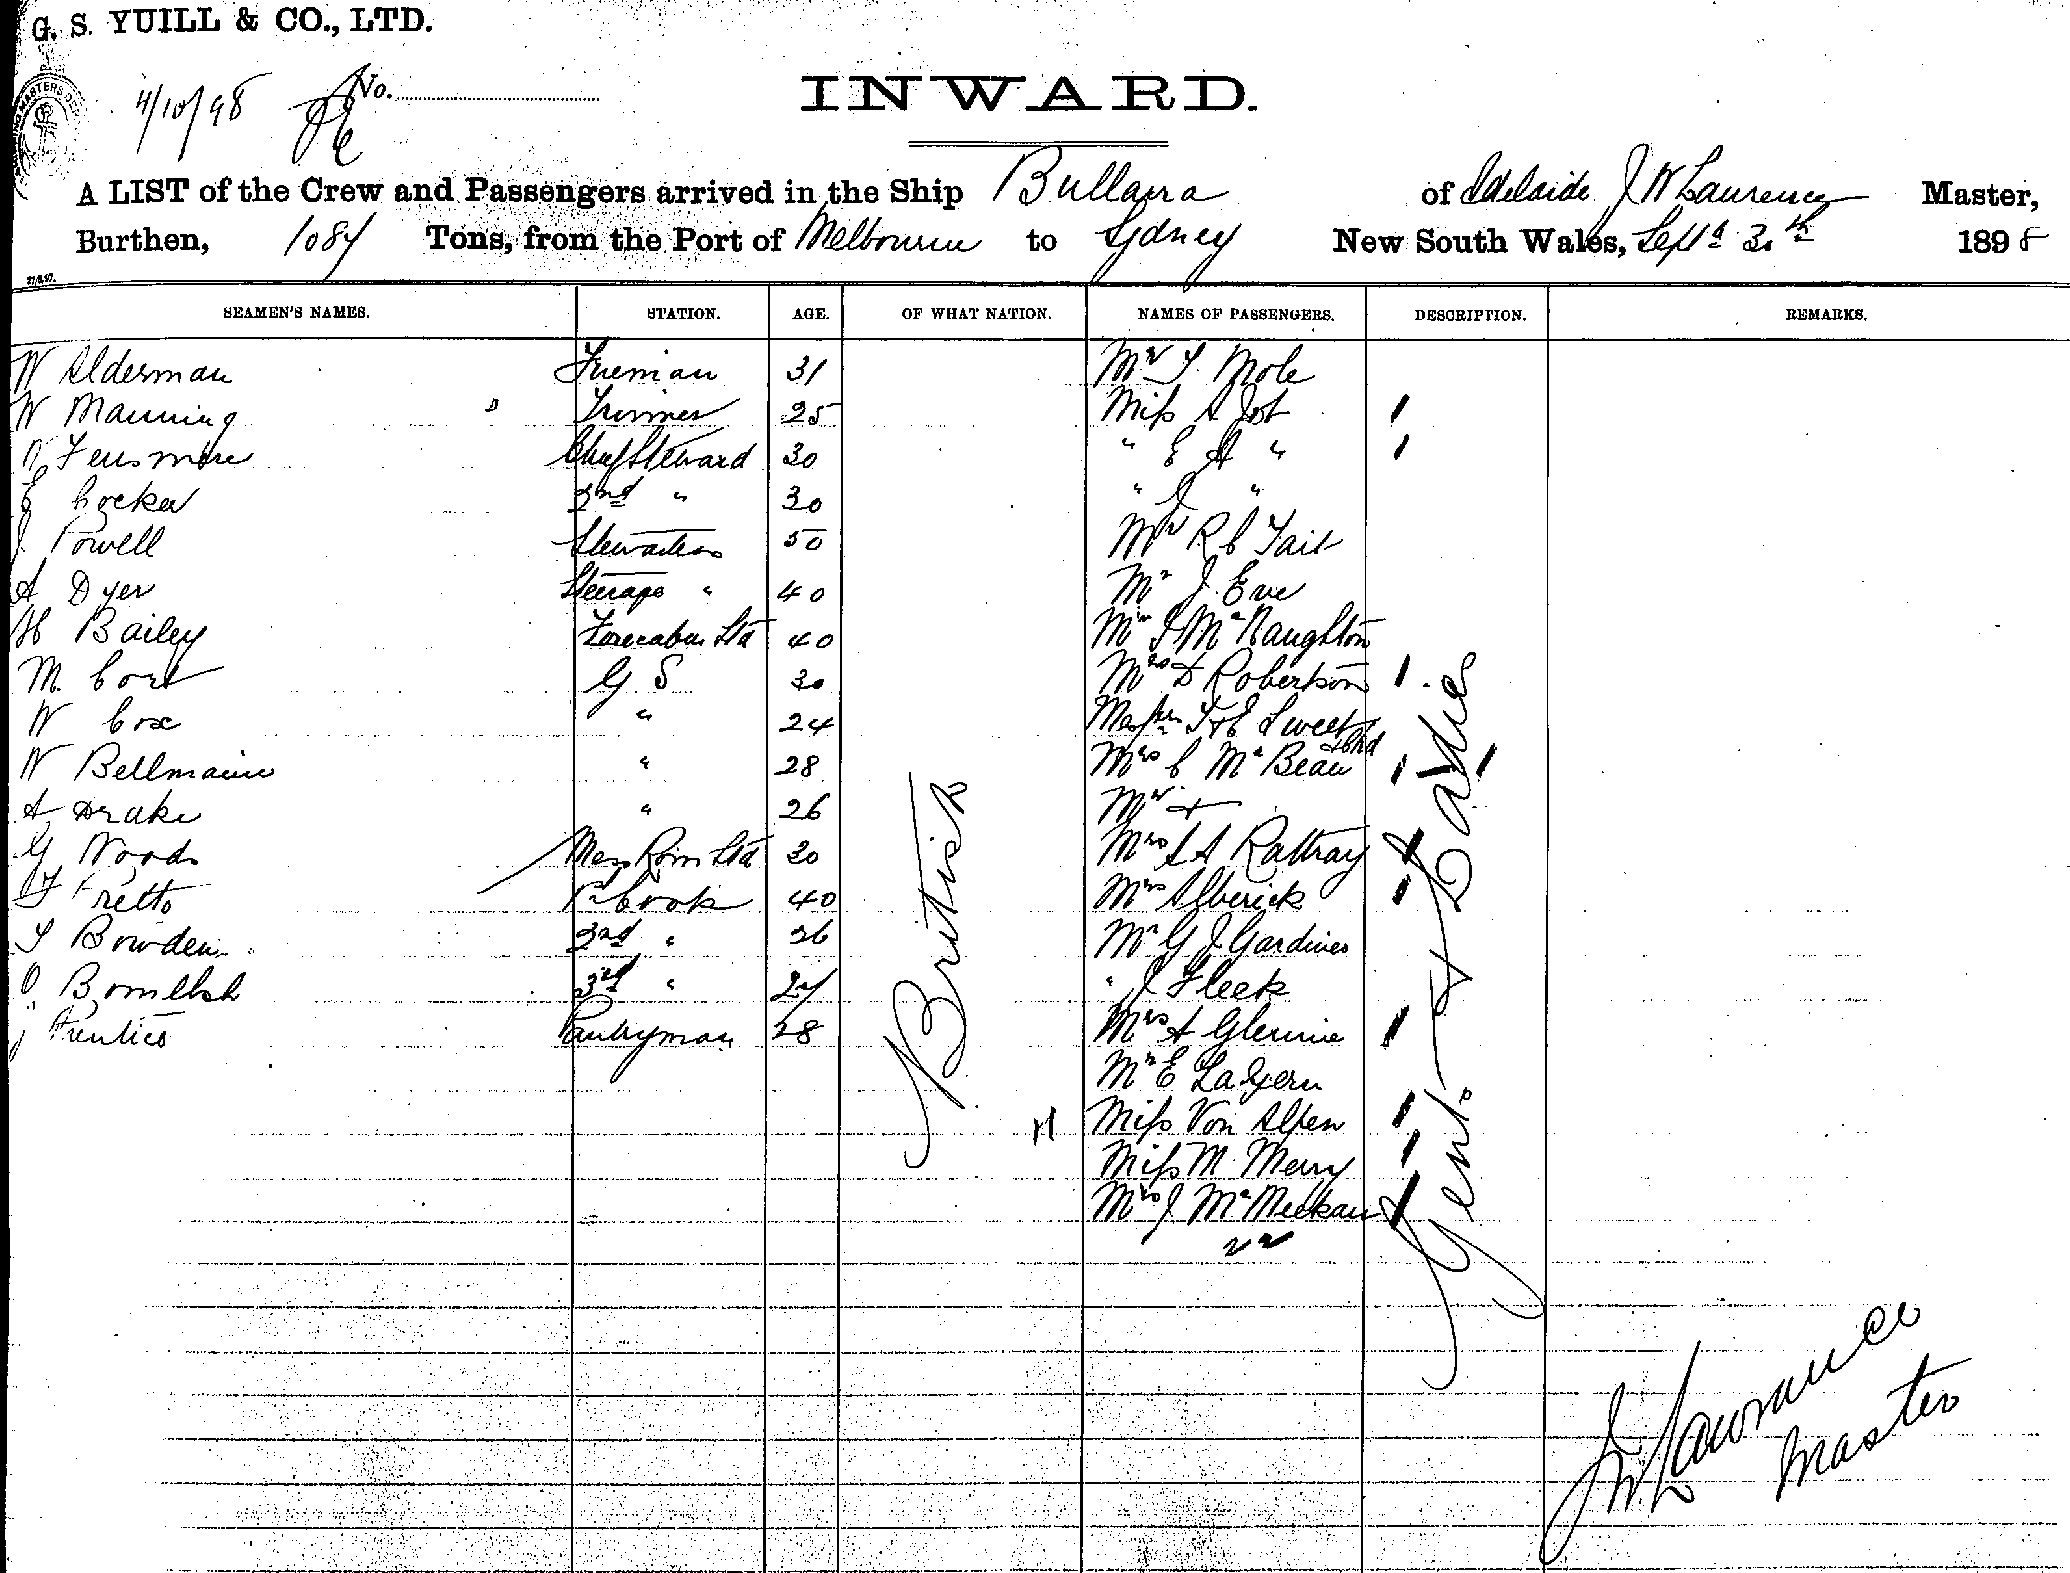 G. S. YUILL & CO., LTD.
4/10/98 No.
INWARD.
A LIST of the Crew and Passengers arrived in the Ship Bullarra of Adelaide J W Lawrence Master,
Burthen, 1084 Tons, from the Port of Melbourne to Sydney New South Wales, Sept 30th 1898
SEAMEN'S NAMES. STATION. AGE. OF WHAT NATION. NAMES OF PASSENGERS. DESCRIPTION. REMARKS.
W Alderman Fireman 31 Mr T. Mole
W Manning Trimmer 25 Miss A Job
Fensmore Chief Steward 30 " E A "
E Cocker 2nd " 30 " J "
J Powell Stewardess 50 Mr R C Tait
A Dyer Steerage " 40 Mr J. Eve
H Bailey Forecabin Std 40 Mr McNaughton
M. Cort G S 30 Mrs D Robertson
W Cox " 24 T & E Sweet
W Bellmaine " 28 Mrs C McBean & Chd
A Drake " 26 Mr
G Woods Mess Room Std 30 Mrs A Rattray
Fretto Cook 40 Mrs Alberick
T Bowden 2nd " 26 Mr G J Gardiner
3rd " 27 " J Fleek
J Prentice Pantryman 28 Mrs A Glennie
Mr E
Miss Von Alpen
Miss M. Merry
Mrs J McMeekan
22
British
Gent. & Ladies
J W Lawrence
Master